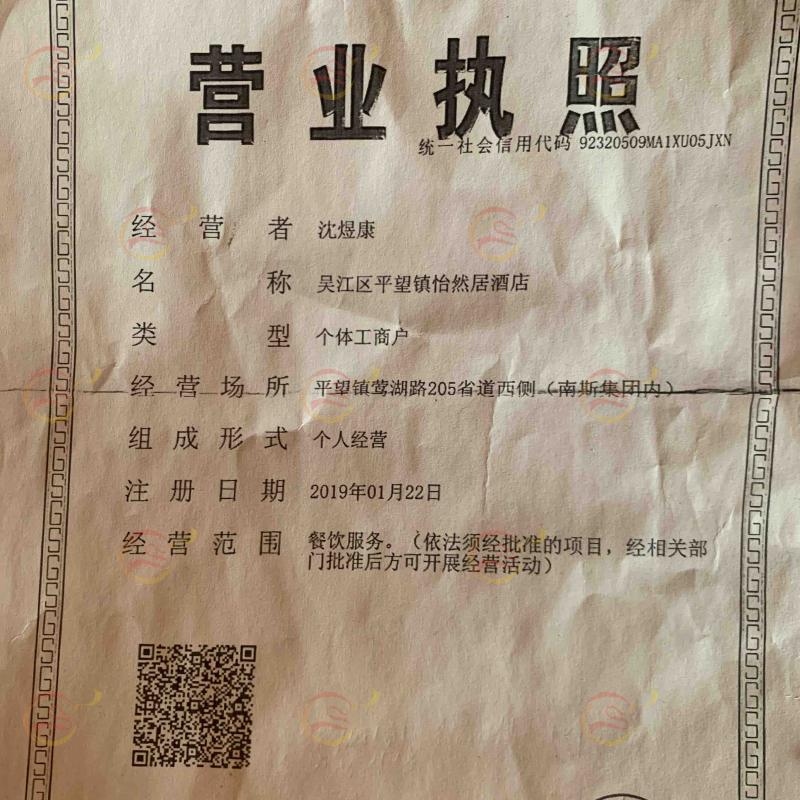 营业执照
统一社会信用代码 92320509MA1XU05JXN
经营者 沈煜康
名称 吴江区平望镇怡然居酒店
类型 个体工商户
经营场所 平望镇莺湖路205省道西侧（南斯集团内）
组成形式 个人经营
注册日期 2019年01月22日
经营范围 餐饮服务。（依法须经批准的项目，经相关部
门批准后方可开展经营活动）